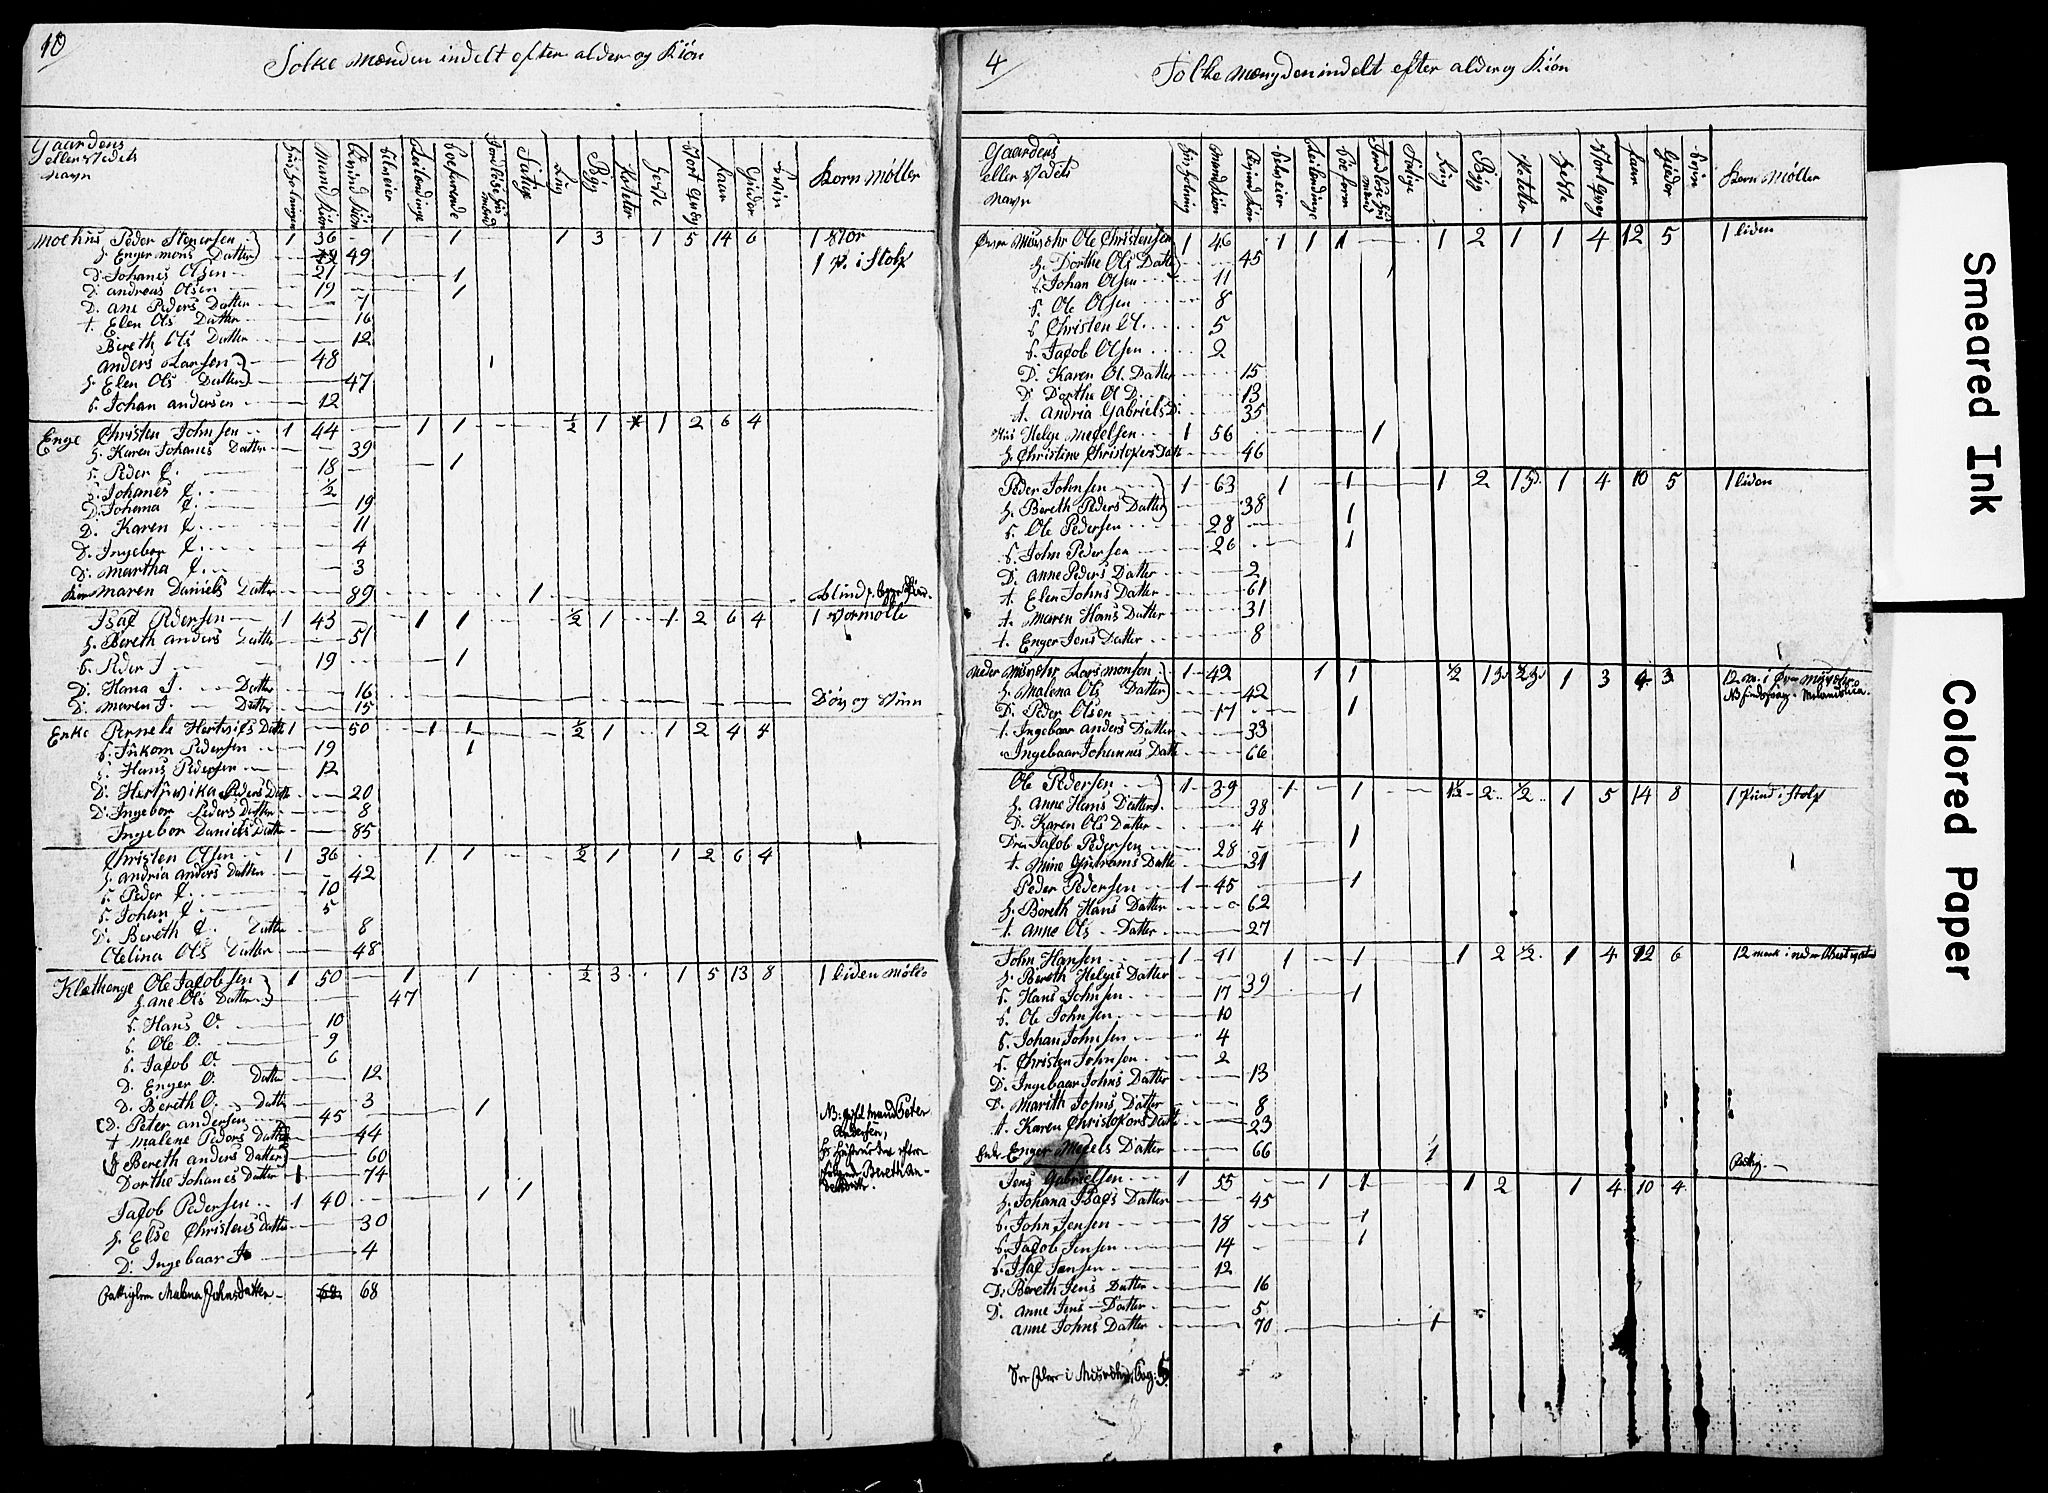 10
Folke Mænden indelt efter alder og Kiøn
Gaardens
eller stedets
navn
Huusholninger Mand Kiøn Qvind Kiøn Selveier Leilendinge Boeførende Jordløse Huus mænd Fatige Rug Byg Poteter Heste Stort Qvæg Faar Gieder Svin Korn Møller
Moehuus Peder Stenersen 1 36 1 1 1 3 1 5 14 6 1 stor
h. Enger Mons Datter 49 1 P. i Stolp
D. Johanes Olsen 21 1
D. Andreas Olsen 19 1
D. Ane Peders Datter 7
t. Elen Ols Datter 16
Bereth Ols Datter 12
Anders Larsen 48 1
h. Elen Ols Datter 47
S. Johan Andersen 12
Enge Christen Johnsen 1 44 1 1 ½ 1 1 2 6 4
h. Karen Johanes Datter 39
S. Peder C. 18 1
S. Johanes C. ½
D. Johana C. 19
D. Karen C. 11
D. Ingebor C. 4
D. Martha C. 3
Maren Daniels Datter 89 1 blind
Isac Pedersen 1 43 1 1 ½ 1 1 2 6 4 1 Vormølle
h. Bereth Anders Datter 51
S. Peder I 19 1
D. Hana I. Datter 16
D. Maren I. Datter 15 Døv og Stum
Enke Pernele Hertvigs Datt 1 50 1 1 ½ 1 1 2 4 4
S. Inkom Pedersen 19 1
S. Hans Pedersen 12
D. Hertvika Peders Datt 20
D. Ingebor Peders Datter 8
Ingebor Daniels Datter 85
Christen Olsen 1 36 1 1 ½ 1 1 2 6 4
h. Andria Anders Datter 42
S. Peder C. 10
S. Johan C. 5
D. Bereth C. Datter 8
Olelina Ols Datter 48
Klæthenge Ole Jacobsen 1 50 1 1 ½ 3 1 5 13 8 1 liden Mølle
h. Ane Ols Datter 47
S. Hans O. 10
S. Ole O. 9
S. Jacob O. 6
D. Enger O. Datter 12
D. Bereth O. Datter 3
D. Peter Andersen 45 1 NB: Gift Mand Peter
Andersen,
t Malene Peders Datter 44
h Bereth Anders Datter 60
Dorthe Johanes Datter 1 74
Jacob Pedersen 1 40 1 1
h. Else Christens Datter 30
D. Ingebaar J 4
Malena Johnsdatter 68 68
4
Folke Mængden indelt efter alder og Kiøn
Gaardens
eller Stedets
Navn
Huusholning Mand Kiøn Qvind Kiøn Selveier Leilendinge Boeførende Jordløse Huus mænd Fatige Rug Byg Poteter Heste Stort Qvæg Faar Gieder Svin Korn Møller
Øvre Misvær Ole Christensen 1 46 1 1 1 1 2 1 1 4 12 5 1 liden
h. Dorthe Ols Datter 45
S. Johan Olsen 11
S. Ole Olsen 8
S. Christen Ol. 5
S. Jacob Olsen 2
D. Karen Ol. Datter 15
D. Dorthe Ol D. 13
t. Andria Gabriels D. 35
Huus Helge Mechelsen 1 56 1
h. Christine Christofers Datt 46
Peder Johnsen 1 63 1 1 1 2 1 1 4 10 5 1 liden
h. Bereth Peders Datter 38
S. Ole Pedersen 28 1
S. John Pedersen 26 1
D. Anne Peders Datter 2
t. Elen Johns Datter 61
t. Maren Hans Datter 31
t. Enger Jens Datter 8
Neder Misvær Lars Monsen 1 42 1 1 ½ 1 1 3 4 3 12 m. i Øvre
h. Malena Ols Datter 42
D. Peder Olsen 17 1
t. Ingebaar Anders Datter 33
Ingebaar Johannes Datt 66
Ole Pedersen 1 39 1 1 1½ 2 ½ 1 5 14 8 1 Pund i Stolp
h. Anne Hans Datter 38
D. Karen Ols Datter 4
Jacob Pedersen 28 1
t. Mine Datter 31
Peder Pedersen 1 45 1
h. Bereth Hans Datter 62
t. Anne Ols Datter 27
John Hansen 1 41 1 1 1 2 ½ 1 4 12 6 12 mark i neder
h. Bereth Helges Datter 39
S. Hans Johnsen 17 1
S. Ole Johnsen 10
S. Johan Johnsen 4
S. Christen Johnsen 2
D. Ingebaar Johns Datter 13
D. Marith Johns Datter 8
t. Karen Christofors Datt 23
Enke Enger Mechels Datter 66 1
Jens Gabrielsen 1 55 1 1 1 2 1 4 10 4
h. Johana Isacs Datter 45
S. John Jensen 18 1
S. Jacob Jensen 14 1
S. Isac Jensen 12
D. Bereth Jens Datter 16
D. Anne Jens Datter 5
Anne Johns Datter 70 1
Smeared Ink
Colored Paper